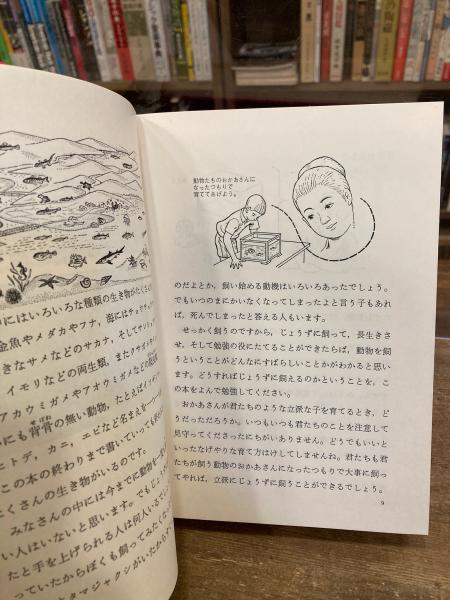 にはいろいろな種類の生き物がたくさん
金魚やメダカやフナ、海にはチョウチョウ
きなサメなどのサカナ、そしてサンショ
イモリなどの両生類、またクサガメや
アカウミガメやアオウミガメなどの爬虫
にも脊骨の無い動物、たとえばイソギン
ヒトデ、カニ、エビなど名まえを一つ一つ
この本の終わりまで書いていっても
たくさんの生き物がいるのです。
みなさんの中には今までに動物を一度
い人はいないと思います。でもじょうず
たと手を上げられる人は何人いるでし
っていたからぼくも飼ってみたくな
タマジャクシがいたから
動物たちのおかあさんに
なったつもりで
育ててあげよう。
のだよとか、飼い始める動機はいろいろあったでしょう。
でもいつのまにかいなくなってしまったよと言う子もあれ
ば、死んでしまったと答える人もいます。
せっかく飼うのですから、じょうずに飼って、長生きさ
せ、そして勉強の役にたてることができたらば、動物を飼
うということがどんなにすばらしいことかがわかると思い
ます。どうすればじょうずに飼えるのかということを、こ
の本をよんで勉強してください。
おかあさんが君たちのような立派な子を育てるとき、ど
うだったでしょうか。いつもいつも君たちのことを注意して
見守ってくださったにちがいありません。どうでもいいと
いったなげやりな育て方はけしてしませんね。君たちも君
たちが飼う動物のおかあさんになったつもりで大事に飼っ
てやれば、立派にじょうずに飼うことができるでしょう。
9